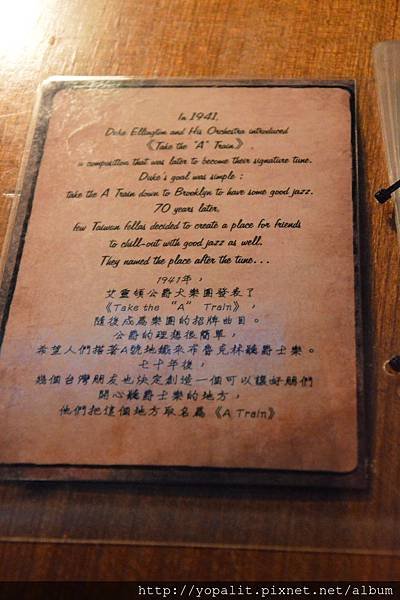 In 1941,
Duke Ellington and His Orchestra introduced
《Take the "A" Train》,
a composition that was later to become their signature tune.
Duke's goal was simple :
take the A Train down to Brooklyn to have some good jazz.
70 years later,
few Taiwan fellas decided to create a place for friends
to chill-out with good jazz as well.
They named the place after the tune...
1941年，
艾靈頓公爵大樂團發表了
《Take the “A” Train》，
隨後成為樂團的招牌曲目。
公爵的理想很簡單，
希望人們搭著A號地鐵來布魯克林聽爵士樂。
七十年後，
幾個台灣朋友也決定創造一個可以讓好朋們
開心聽爵士樂的地方，
他們把這個地方取名為《A Train》
http://yopalit.pixnet.net/album